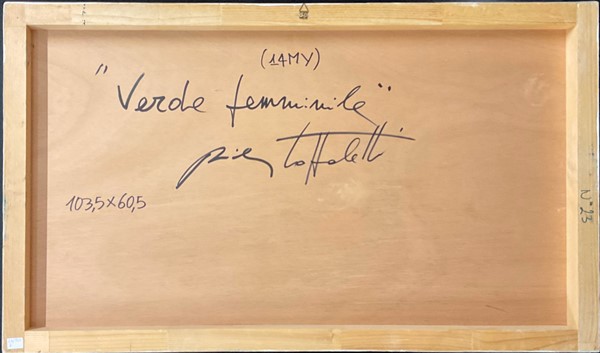 (14MY)
"Verde femminile"
pier toffoletti
103,5x60,5
N° 23